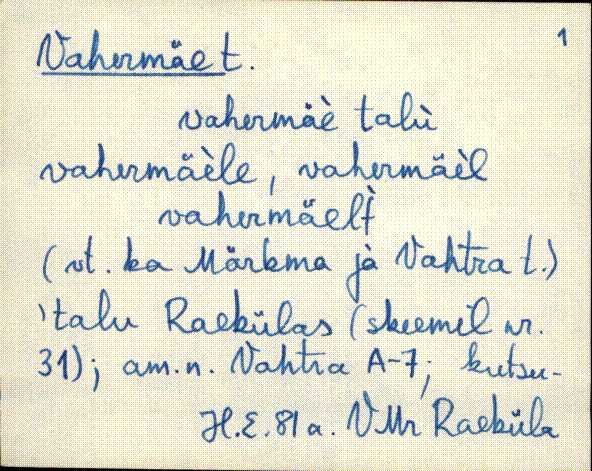 1
Vahermäe t.
vahermäè talù
vahermäèle, vahermäèl
vahermäelt̀
(vt. ka Märkma jà Vahtra t.)
'talu Raekülas (skeemil nr.
31); am.n. Vahtra A-7; kutsu-
H.E. 81 a. VMr Raeküla